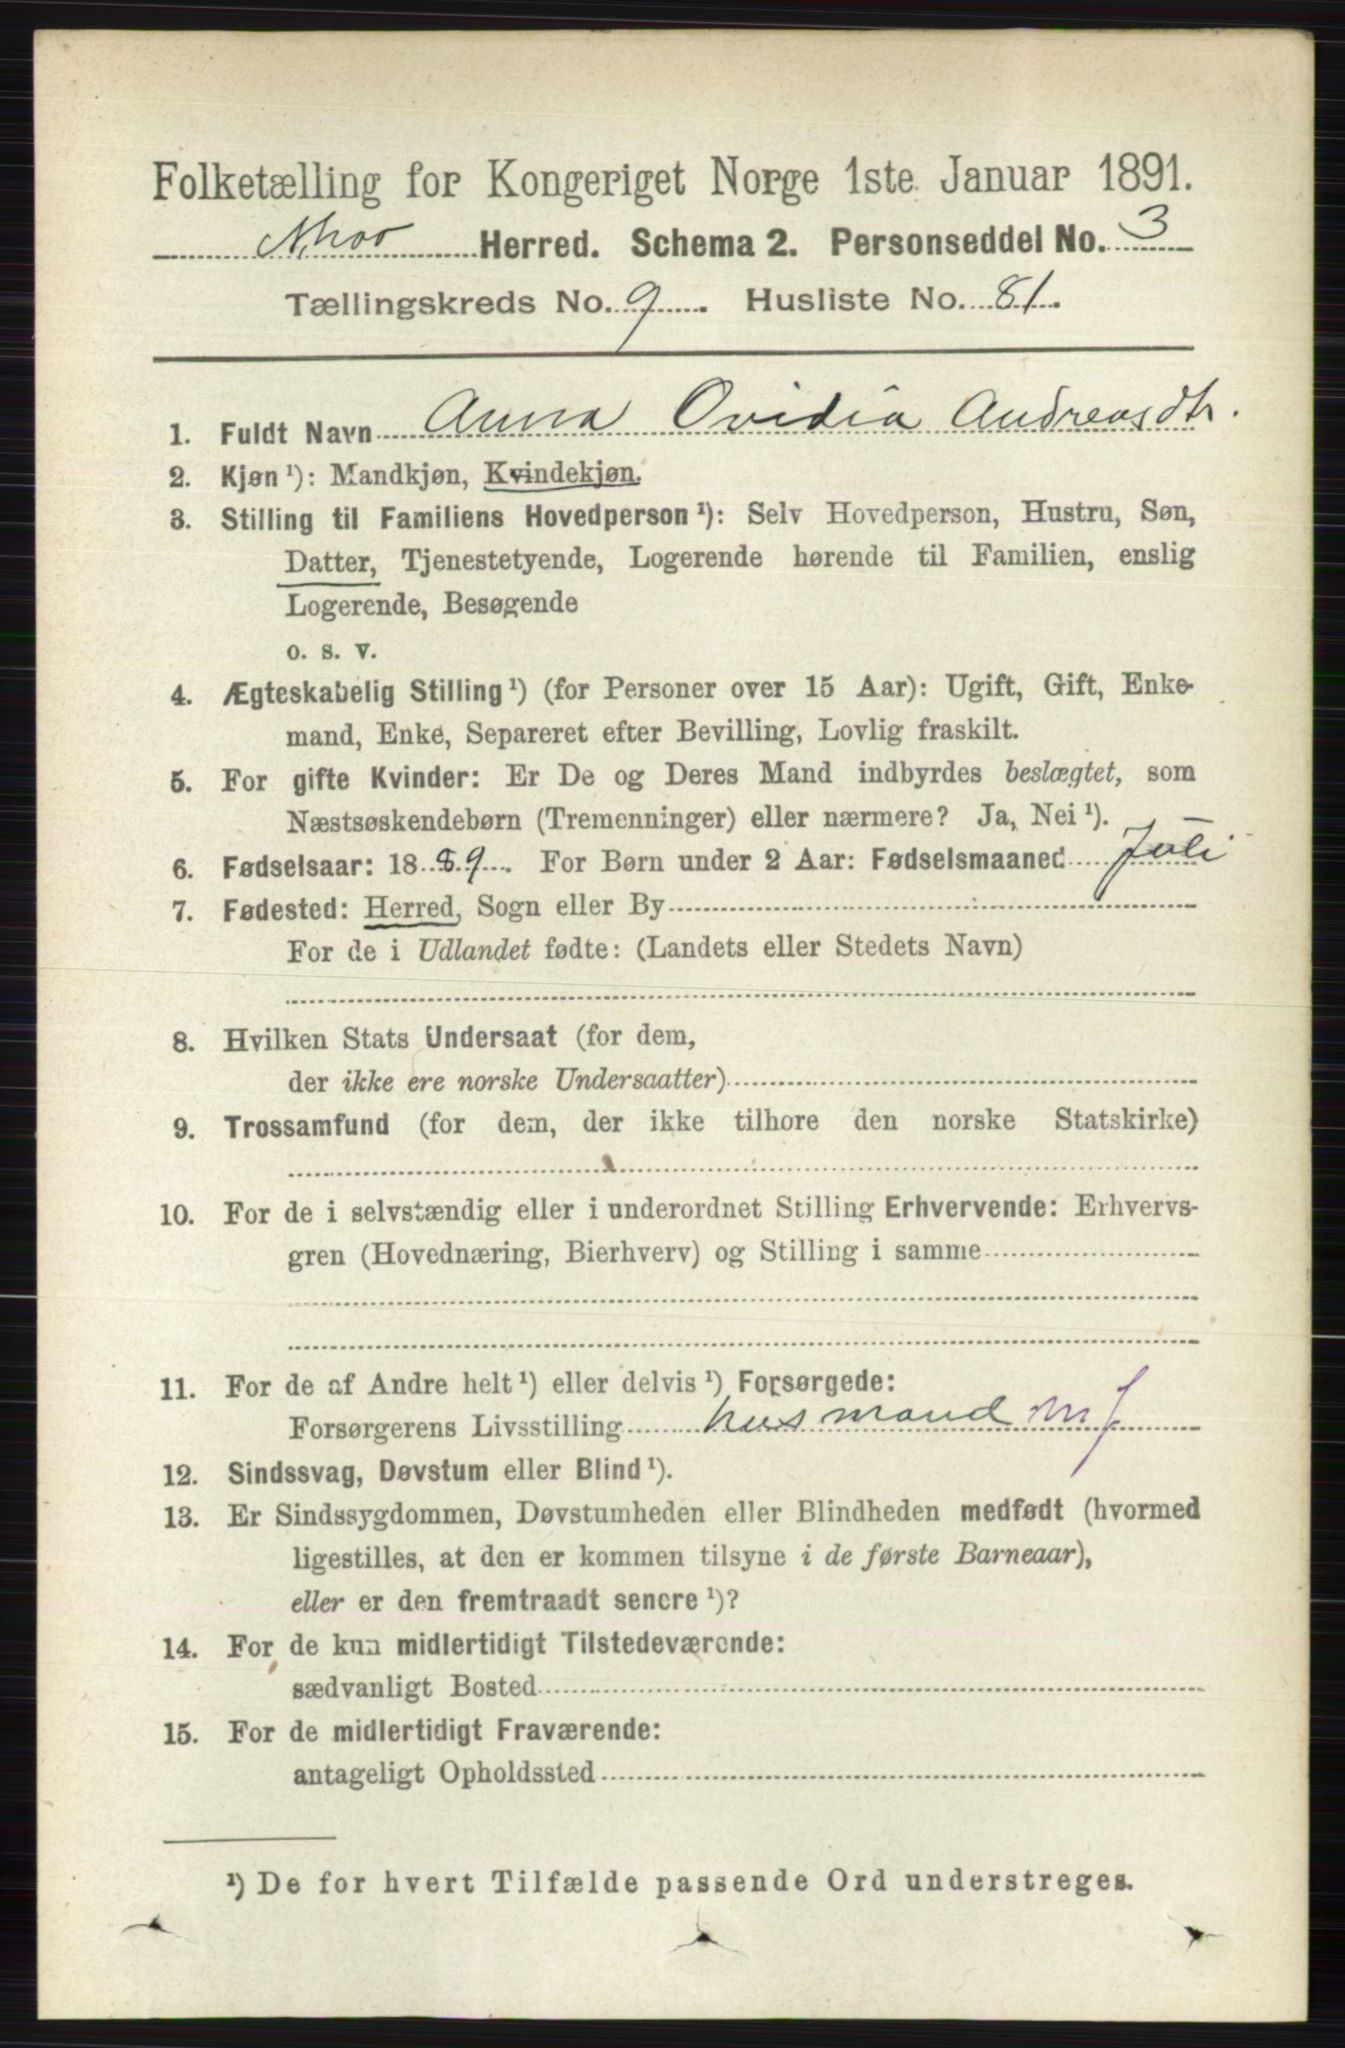 Folketælling for Kongeriget Norge 1ste Januar 1891.
Herred. Schema 2. Personseddel No. 3
Tællingskreds No. 9. Husliste No. 81.
1. Fuldt Navn Anna Ovidia Andreasdtr.
2. Kjøn ¹): Mandkjøn, Kvindekjøn.
3. Stilling til Familiens Hovedperson ¹): Selv Hovedperson, Hustru, Søn,
Datter, Tjenestetyende, Logerende hørende til Familien, enslig
Logerende, Besøgende
o. s. v.
4. Ægteskabelig Stilling ¹) (for Personer over 15 Aar): Ugift, Gift, Enke-
mand, Enke, Separeret efter Bevilling, Lovlig fraskilt.
5. For gifte Kvinder: Er De og Deres Mand indbyrdes beslægtet, som
Næstsøskendebørn (Tremenninger) eller nærmere? Ja, Nei ¹).
6. Fødselsaar: 1889. For Børn under 2 Aar: Fødselsmaaned Juli
7. Fødested: Herred, Sogn eller By
For de i Udlandet fødte: (Landets eller Stedets Navn)
8. Hvilken Stats Undersaat (for dem,
der ikke ere norske Undersaatter)
9. Trossamfund (for dem, der ikke tilhøre den norske Statskirke)
10. For de i selvstændig eller i underordnet Stilling Erhvervende: Erhvervs-
gren (Hovednæring, Bierhverv) og Stilling i samme
11. For de af Andre helt ¹) eller delvis ¹) Forsørgede:
Forsørgerens Livsstilling husmand mJ
12. Sindssvag, Døvstum eller Blind ¹).
13. Er Sindssygdommen, Døvstumheden eller Blindheden medfødt (hvormed
ligestilles, at den er kommen tilsyne i de første Barneaar),
eller er den fremtraadt senere ¹)?
14. For de kun midlertidigt Tilstedeværende:
sædvanligt Bosted
15. For de midlertidigt Fraværende:
antageligt Opholdssted
¹) De for hvert Tilfælde passende Ord understreges.